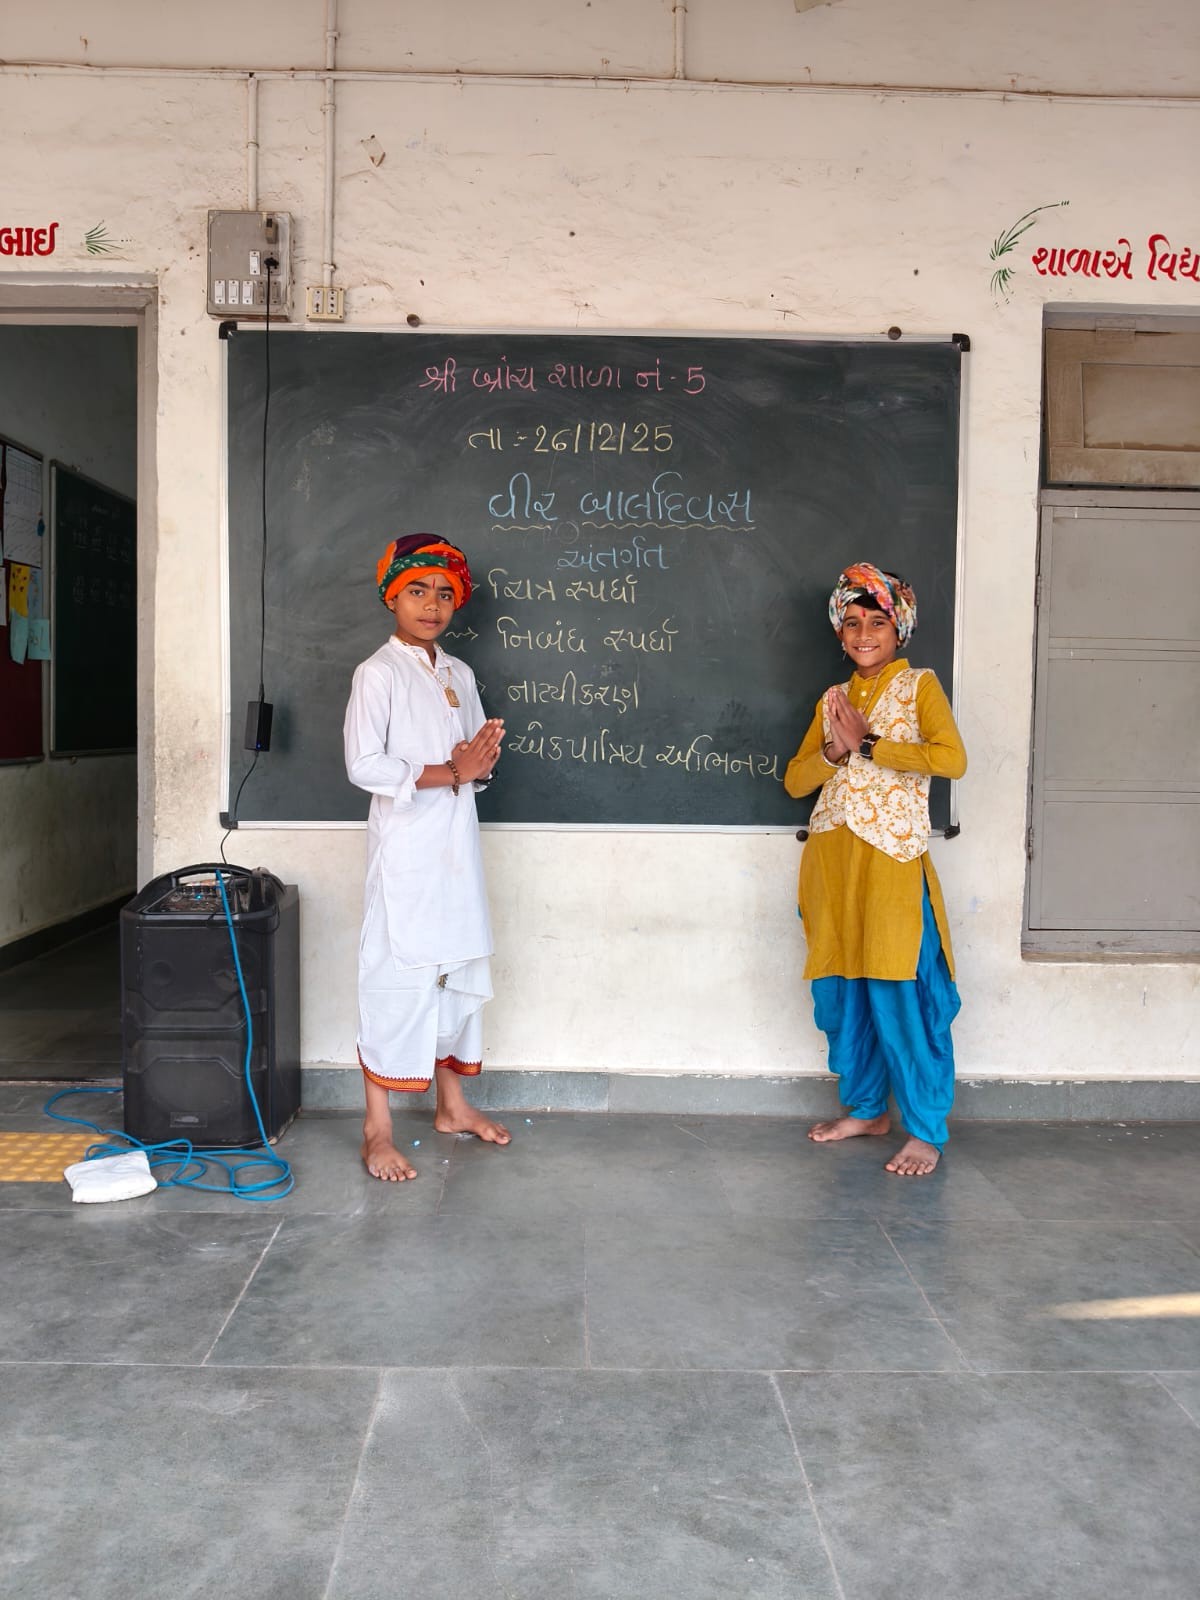 બાઈ
શાળાએ વિદ્ય
શ્રી બ્રાંચ શાળા નં - 5
તા :- 26/12/25
વીર બાલદિવસ
અંતર્ગત
ચિત્ર સ્પર્ધા
નિબંધ સ્પર્ધા
નાટ્યીકરણ
એકપાત્રિય અભિનય